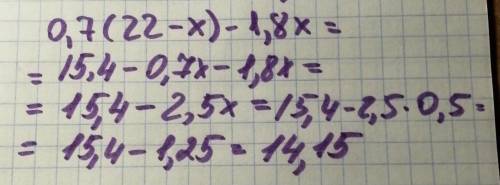 0,7(22-x)-1,8x=
=15,4-0,7x-1,8x=
=15,4-2,5x=15,4-2,5·0,5=
=15,4-1,25=14,15